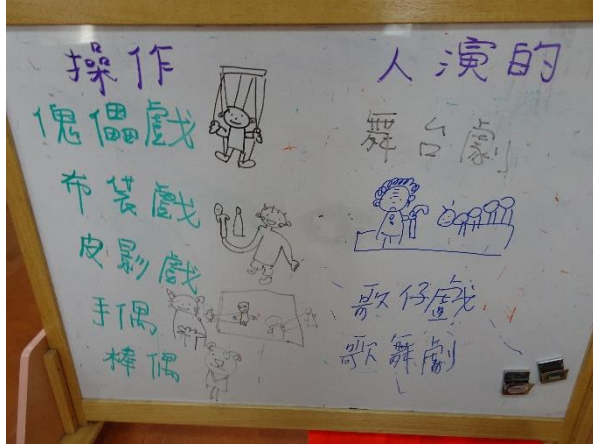 操作
傀儡戲
布袋戲
皮影戲
手偶
棒偶
人演的
舞台劇
歌仔戲
歌舞劇